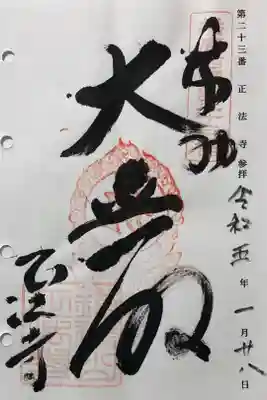 第二十三番 正法寺参拝 令和五年一月廿八日
奉拝
大悲殿
正法寺